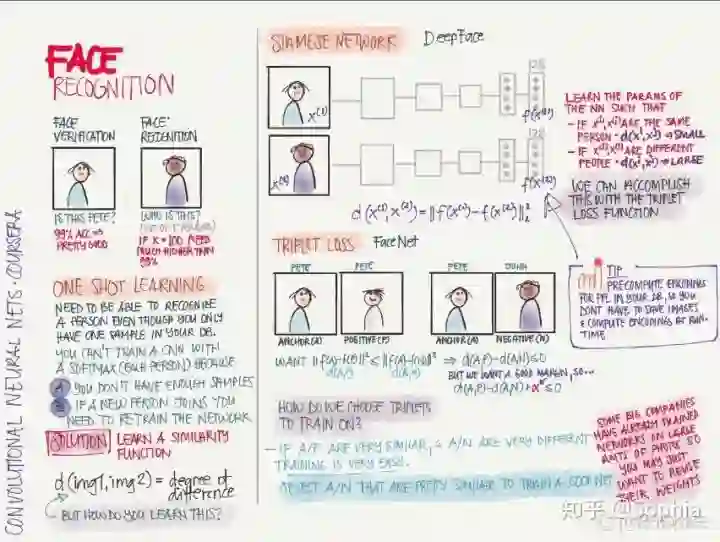 CONVOLUTIONAL NEURAL NETS · COURSERA
FACE
RECOGNITION
FACE
VERIFICATION
FACE
IS THIS PETE?
99% ACC ⇒
PRETTY GOOD
WHO IS THIS?
IF K = 100 NEED
MUCH HIGHER THAN
99%
ONE SHOT LEARNING
NEED TO BE ABLE TO RECOGNIZE
A PERSON EVEN THOUGH YOU ONLY
HAVE ONE SAMPLE IN YOUR DB.
YOU CAN'T TRAIN A CNN WITH
A SOFTMAX (EACH PERSON) BECAUSE
A YOU DON'T HAVE ENOUGH SAMPLES
B IF A NEW PERSON JOINS YOU
NEED TO RETRAIN THE NETWORK
SOLUTION LEARN A SIMILARITY
FUNCTION
d(img1, img2) = degree of
difference
BUT HOW DO YOU LEARN THIS?
SIAMESE NETWORK DeepFace
x⁽¹⁾
128
f(x⁽¹⁾)
x⁽²⁾
128
f(x⁽²⁾)
d(x⁽¹⁾, x⁽²⁾) = ||f(x⁽¹⁾) - f(x⁽²⁾)||²₂
LEARN THE PARAMS OF
THE NN SUCH THAT
- IF x⁽¹⁾, x⁽²⁾ ARE THE SAME
PERSON · d(x¹, x²) ⇒ SMALL
- IF x⁽¹⁾, x⁽²⁾ ARE DIFFERENT
PEOPLE · d(x¹, x²) ⇒ LARGE
WE CAN ACCOMPLISH
THIS WITH THE TRIPLET
LOSS FUNCTION
TIP
PRECOMPUTE ENCODINGS
FOR PPL IN YOUR DB, SO YOU
DONT HAVE TO SAVE IMAGES
& COMPUTE ENCODINGS AT RUN-
TIME
TRIPLET LOSS FaceNet
PETE PETE PETE
ANCHOR (A) POSITIVE (P) ANCHOR (A) NEGATIVE (N)
WANT ||f(A)-f(P)||² ≤ ||f(A)-f(N)||² ⇒ d(A,P) - d(A,N) ≤ 0
d(A,P) d(A,N)
BUT WE WANT A GOOD MARGIN, SO...
d(A,P) - d(A,N) + α ≤ 0
HOW DO WE CHOOSE TRIPLETS
TO TRAIN ON?
- IF A/P ARE VERY SIMILAR, & A/N ARE VERY DIFFERENT
TRAINING IS VERY EASY.
A/N THAT ARE PRETTY SIMILAR TO TRAIN A GOOD NET
SOME BIG COMPANIES
HAVE ALREADY TRAINED
NETWORKS ON LARGE
AMTS OF PHOTOS SO
YOU MAY JUST
WANT TO REUSE
THEIR WEIGHTS
知乎 @sophia